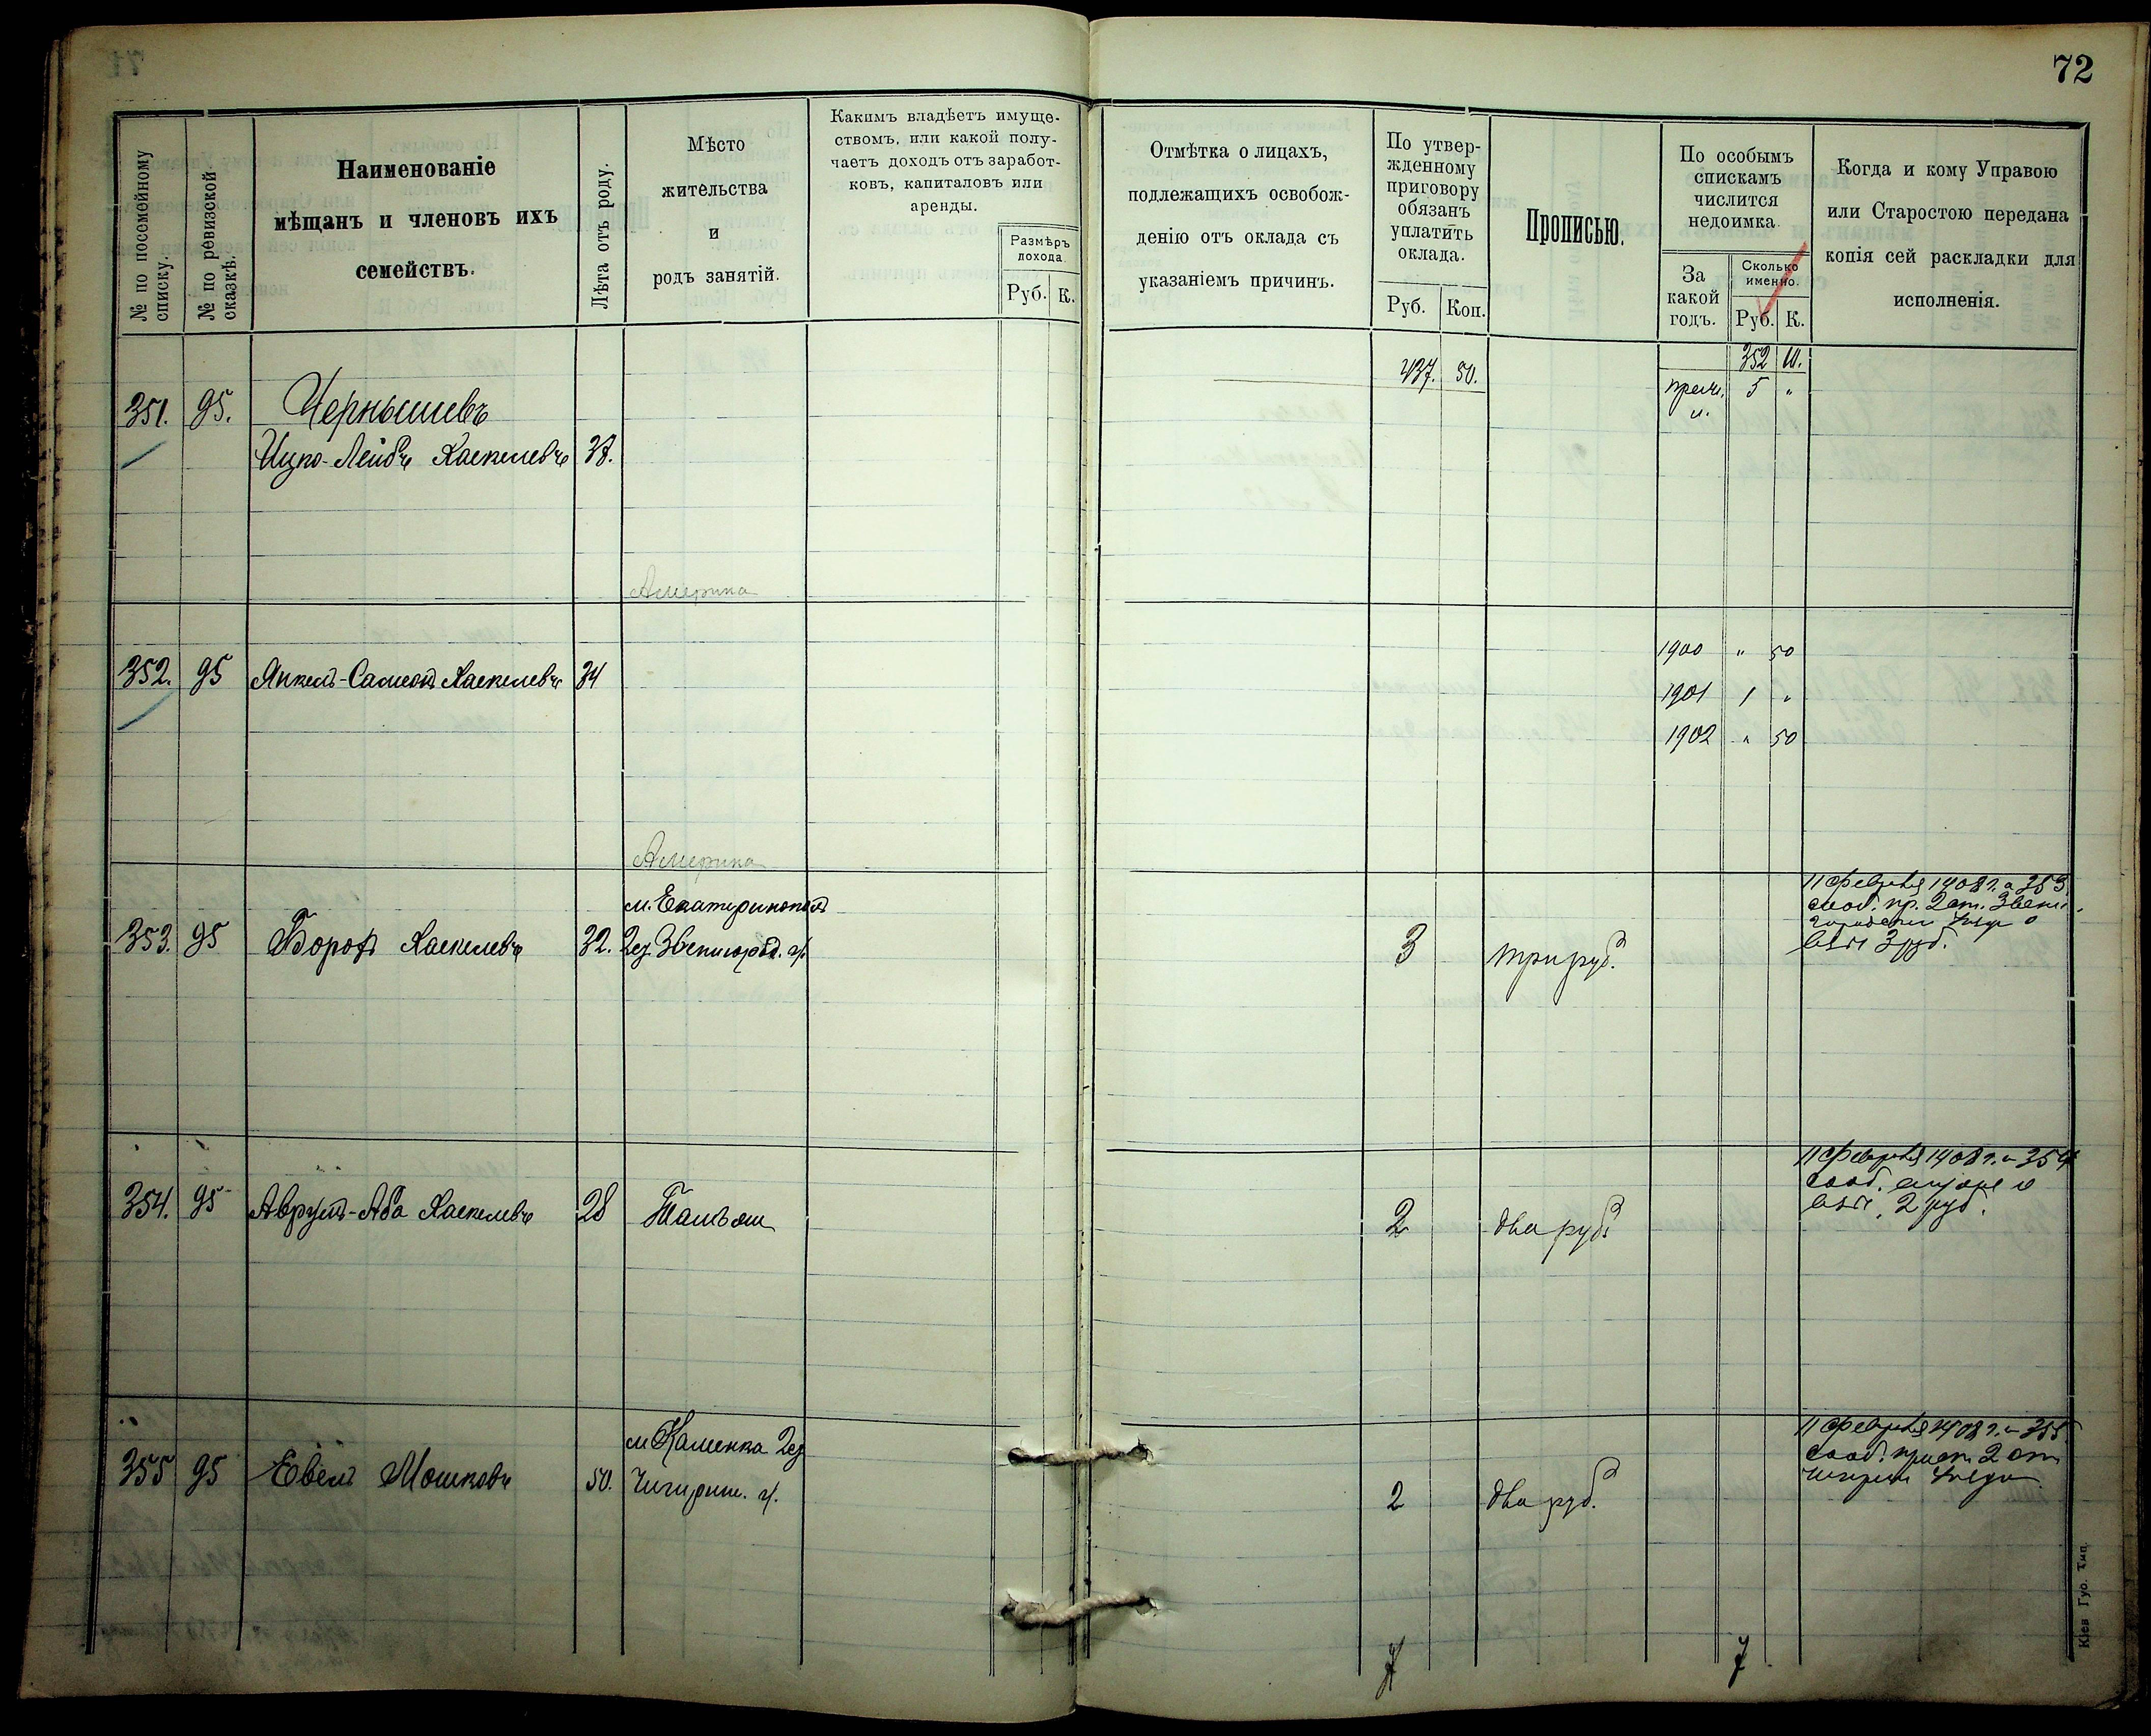 72
№ по посемейному списку.
№ по ревизской сказкѣ.
Наименованіе
мѣщанъ и членовъ ихъ
семействъ.
Лѣта отъ роду.
Мѣсто
жительства
и
родъ занятій.
Какимъ владѣетъ имуще-
ствомъ, или какой полу-
чаетъ доходъ отъ заработ-
ковъ, капиталовъ или
аренды.
Размѣръ
дохода
Руб. К.
Отмѣтка о лицахъ,
подлежащихъ освобож-
денію отъ оклада съ
указаніемъ причинъ.
По утвер-
жденному
приговору
обязанъ
уплатить
оклада.
Руб. Коп.
Прописью.
По особымъ
спискамъ
числится
недоимка.
За
какой
годъ.
Сколько
именно.
Руб. К.
Когда и кому Управою
или Старостою передана
копія сей раскладки для
исполненія.
437. 50.
352
351. 95. Чернышевъ
5 "
Ицко-Лейбъ Хаскелевъ
Америка
1900 " 50
352. 95 Янкель-Самсонъ Хаскелевъ 34
1901 1 "
1902 " 50
Америка
м. Екатеринополь
353. 95 Борохъ Хаскелевъ 32. Звенигород. у.
3 три руб.
11 февраля 1908 г. 353
2 ст.
3 руб.
354. 95 Аврумъ-Аба Хаскелевъ 28
2 два руб.
11 февраля 1908 г. 354
2 руб.
м. Каменка
355 95 Евель Мошковъ 50. Чигирин. у.
2 два руб.
11 февраля 1908 г. 355
2 ст.
7 7
Кіев Губ. Тип.